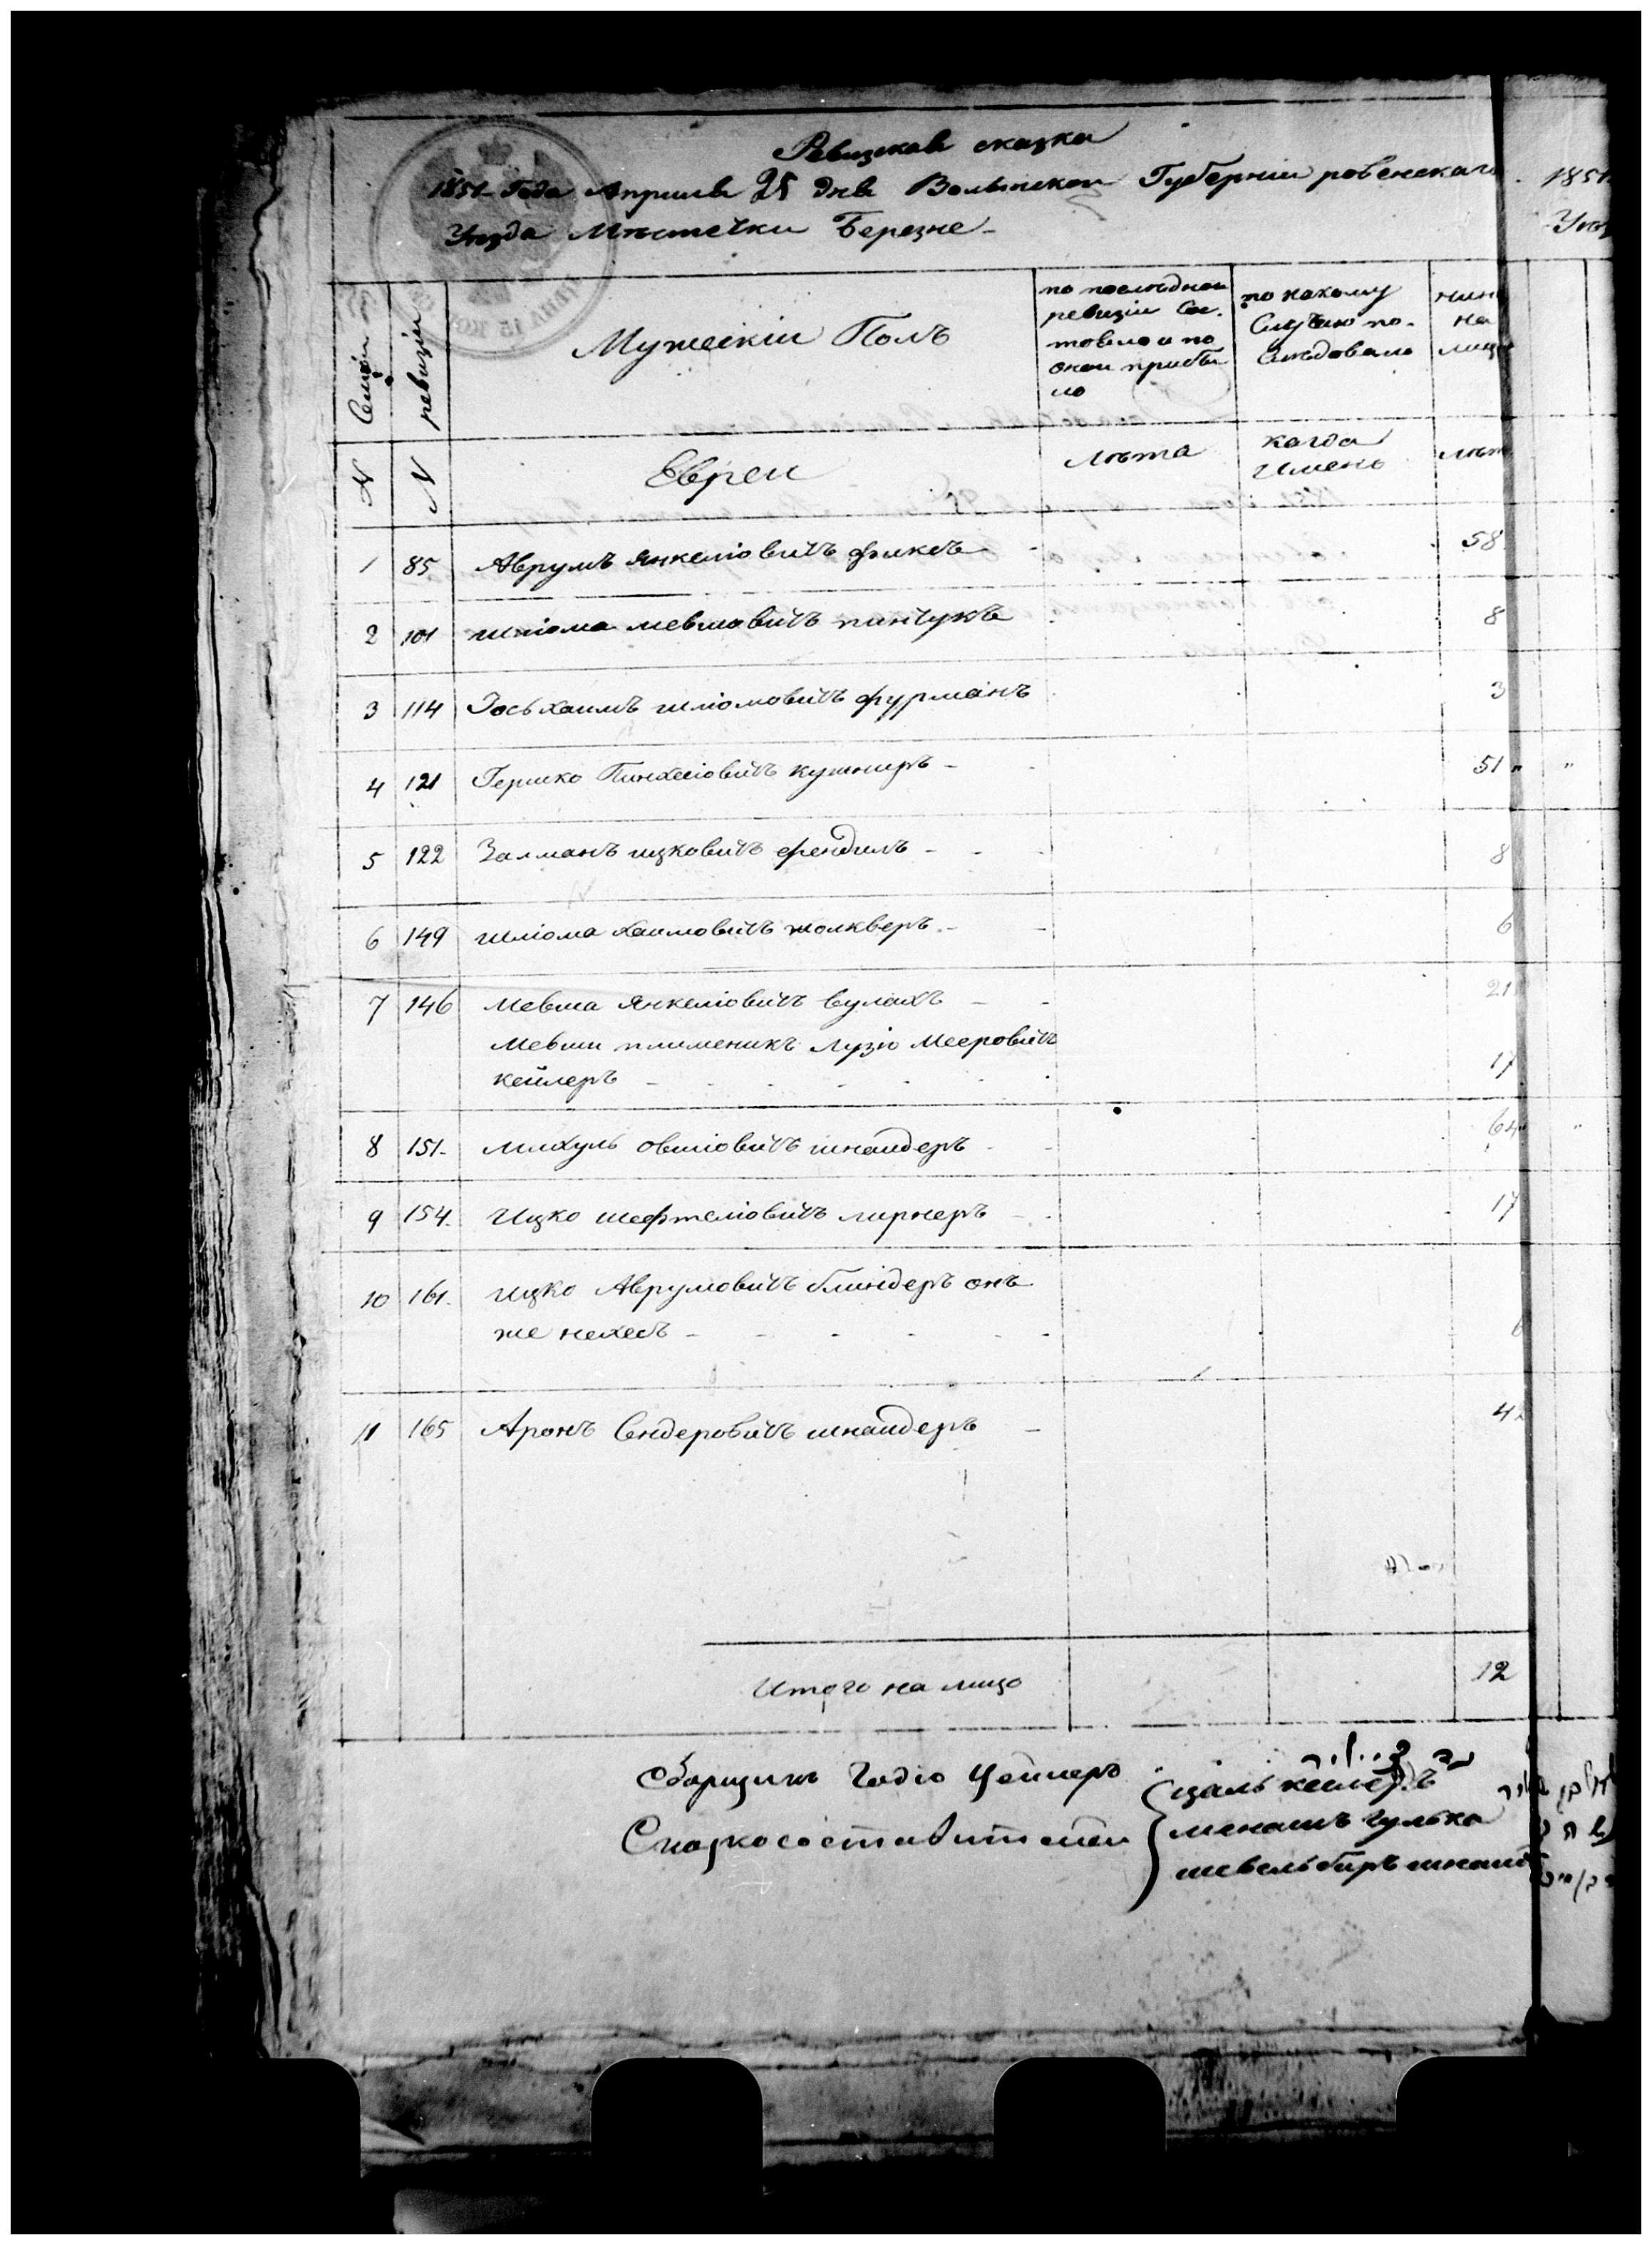 Ревизская сказка
1851 Года Апреля 25 дня Волынской Губерніи ровенскаго
Уезда Мѣстечки Березне
Семіи
ревизіи
Мужескіи Полъ
по последнеи
ревизіи Сос-
тояло и по
онои прибы
ло
по какому
Случаю по-
Следовало
нинѣ
на
лицо
N
N
Евреи
лѣта
кагда
Имено
1 85 Аврумъ Янкеліовичъ фиксъ 58
2 101 шліома мевшовичъ пинчукъ 8
3 114 Іось хаимъ шліомовичъ фурманъ 3
4 121 Гершко Пинхесіовичъ кушниръ 51
5 122 Залманъ ицковичъ френдилъ 8
6 149 шліома хаимовичъ жолкверъ 6
7 146 Мевша Янкеліовичъ вулахъ 21
Мевши плименикъ лузіо Мееровичъ
кейлеръ 17
8 151 михуль овшіовичъ шнаидеръ 64
9 154 Ицко шефтеліовичъ лирнеръ 17
10 161 ицко Аврумовичъ блиндеръ онъ
же нехесъ
11 165 Аронъ Сендеровичъ шнаидеръ 4
Итого на лицо 12
Сборщикъ Годіо Цейнеръ
Скаскосоставители
цаль кейлеръ
менашъ гулька
шевель биръ шнаид
1851
Уез